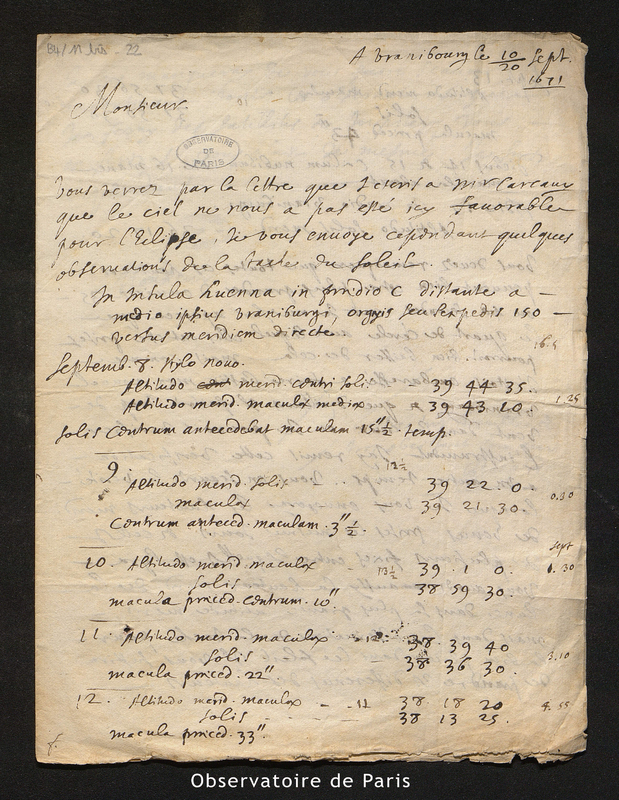 B4/11 bis - 22
A Vranibourg le 10/20 Sept.
1671
Monsieur
OBSERVATOIRE DE PARIS
Vous verrez par la lettre que J'escris a Mr Carcauy
que le ciel ne nous a pas esté icy favorable
pour l'Eclipse, Je vous envoye cependant quelques
observations de la tache du Soleil.
In Insula Huenna in prædio C distante a —
medio ipsius Vraniburgi, orgyis seu sexpedis 150 —
versus meridiem directe
Septemb. 8. stylo novo.
16.5
Altitudo merid centri Solis 39 44 35.
Altitudo merid. maculæ mediæ 39 43 10. 1.25
Solis Centrum antecedebat maculam 15" ½ temp.
12 ½
9 Altitudo merid. Solis - .. 39 22. 0.
maculæ 39 21. 30. 0.30
Centrum anteced. maculam. 3" ½.
sept
10. Altitudo merid maculæ 13 ½ 39 . 1 0. 1. 30
Solis 38 59 30.
macula præced. Centrum. 10".
11. Altitudo merid. maculæ - 12. 38. 39 40
Solis 38 36 30. 3.10
macula præced. 22"
12. Altitudo merid. maculæ - - 11 38 18 20 4. 55
Solis - - - 38 13 25.
macula præced. 33".
f.
Observatoire de Paris